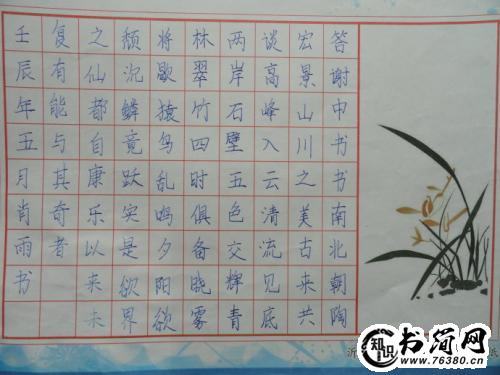 答谢中书书南北朝陶
宏景山川之美古来共
谈高峰入云清流见底
两岸石壁五色交辉青
林翠竹四时俱备晓雾
将歇猿鸟乱鸣夕阳欲
颓沉鳞竟跃实是欲界
之仙都自康乐以来未
复有能与其奇者
壬辰年五月肖雨书
知识 书简网
www.76380.cn